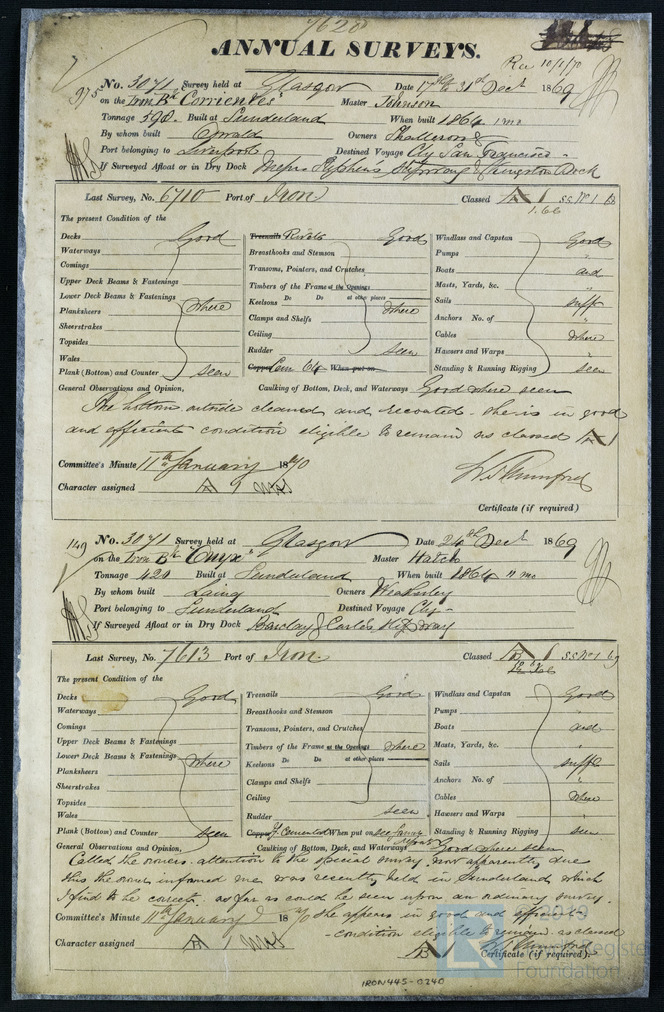 7620
ANNUAL SURVEYS.
Rec 10/1/70
975 No. 3071 Survey held at Glasgow Date 17th to 31st Dect 1869
on the Iron Bk "Corrientes" Master Johnson
Tonnage 598. Built at Sunderland When built 1864 1 mo
By whom built Oswald Owners Shallcross &
Port belonging to Liverpool Destined Voyage Cly San Francisco
If Surveyed Afloat or in Dry Dock Messrs Stephens Slipway & Kingston Dock
Last Survey, No. 6710 Port of Iron Classed A 1 ss No 1
1.66
The present Condition of the
Decks Good
Waterways
Comings
Upper Deck Beams & Fastenings
Lower Deck Beams & Fastenings
Planksheers where
Sheerstrakes
Topsides
Wales
Plank (Bottom) and Counter seen
Treenails Rivets Good
Breasthooks and Stemson
Transoms, Pointers, and Crutches
Timbers of the Frame at the Openings
Keelsons Do Do at other places
Clamps and Shelfs where
Ceiling
Rudder seen
Copper Cem 64 When put on
Windlass and Capstan Good
Pumps "
Boats and
Masts, Yards, &c. "
Sails sufft
Anchors No. of "
Cables where
Hawsers and Warps "
Standing & Running Rigging seen
General Observations and Opinion, Caulking of Bottom, Deck, and Waterways Good where seen
The bottom outside cleaned and recoated - She is in good
and efficient condition eligible to remain as classed A 1
Committee's Minute 11th January 1870
Character assigned A 1
Certificate (if required)
149 No. 3071 Survey held at Glasgow Date 24th Dect 1869
on the Iron Bk "Onyx" Master Hatch
Tonnage 420 Built at Sunderland When built 1864 11 mo
By whom built Laing Owners Weatherley
Port belonging to Sunderland Destined Voyage Cly -
If Surveyed Afloat or in Dry Dock Barclay & Curle's Slip way
Last Survey, No. 7613 Port of Iron Classed B 1 ss No 1 69
The present Condition of the
Decks Good
Waterways
Comings
Upper Deck Beams & Fastenings
Lower Deck Beams & Fastenings where
Planksheers
Sheerstrakes
Topsides
Wales
Plank (Bottom) and Counter seen
Treenails Good
Breasthooks and Stemson
Transoms, Pointers, and Crutches
Timbers of the Frame at the Openings where
Keelsons Do Do at other places
Clamps and Shelfs
Ceiling
Rudder seen
Copper Cemented When put on
Windlass and Capstan Good
Pumps "
Boats and
Masts, Yards, &c. "
Sails sufft
Anchors No. of "
Cables where
Hawsers and Warps "
Standing & Running Rigging seen
General Observations and Opinion, Caulking of Bottom, Deck, and Waterways Good where seen
Called the owners attention to the special survey now apparently due
this the owner informed me was recently held in Sunderland which
I find to be correct. as far as could be seen upon an ordinary survey.
Committee's Minute 11th January 1870 She appears in good and efficient
condition eligible to remain as classed
Character assigned B 1 B 1
Certificate (if required).
2019
Lloyd's Register
Foundation
IRON445-0240